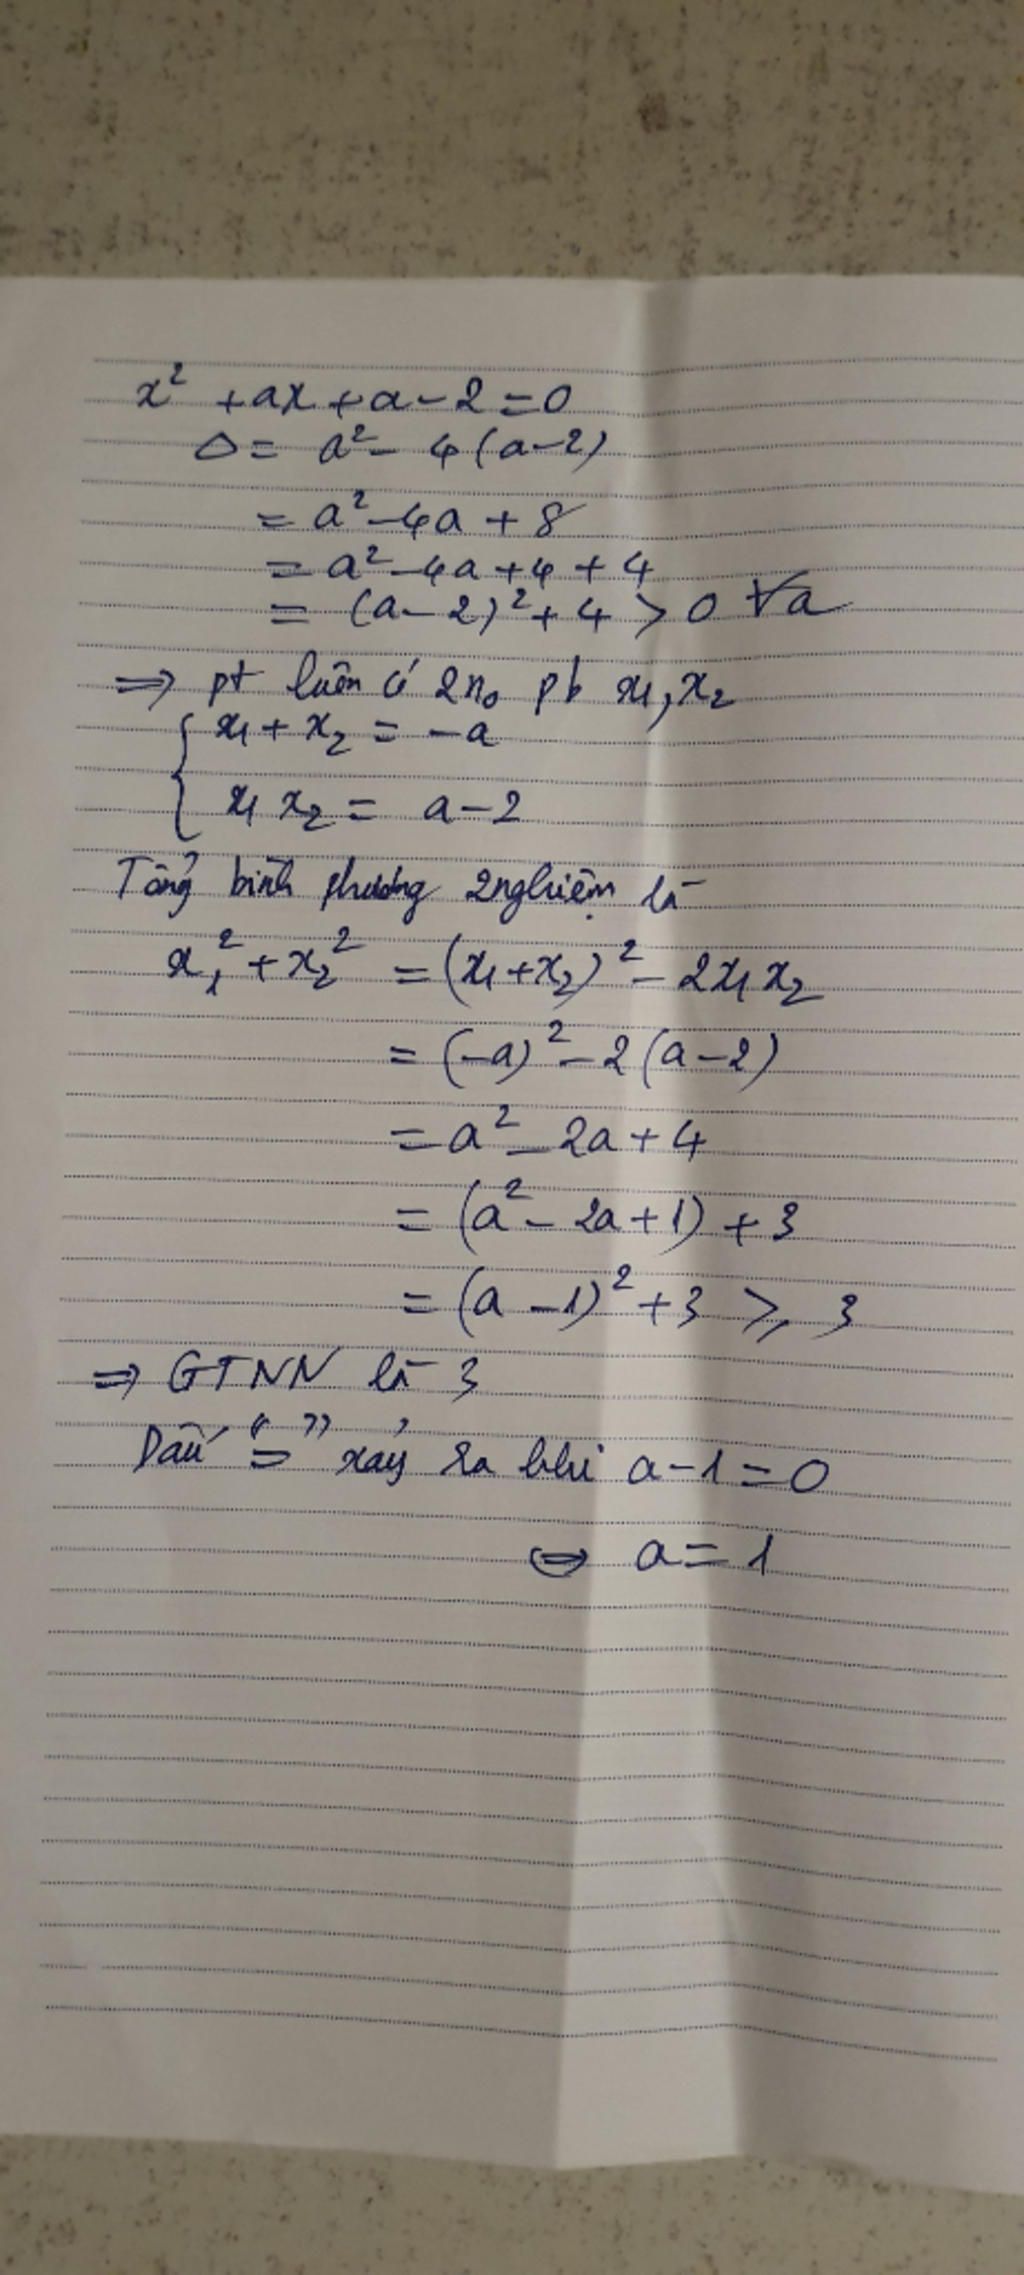 x² + ax + a - 2 = 0
Δ = a² - 4(a-2)
= a² - 4a + 8
= a² - 4a + 4 + 4
= (a-2)² + 4 > 0 ∀a
⇒ pt luôn có 2 n₀ pb x₁, x₂
{ x₁ + x₂ = -a
x₁ x₂ = a - 2
Tổng bình phương 2 nghiệm là
x₁² + x₂² = (x₁+x₂)² - 2x₁x₂
= (-a)² - 2(a-2)
= a² - 2a + 4
= (a² - 2a + 1) + 3
= (a - 1)² + 3 ≥ 3
⇒ GTNN là 3
Dấu "=" xảy ra khi a - 1 = 0
⇔ a = 1